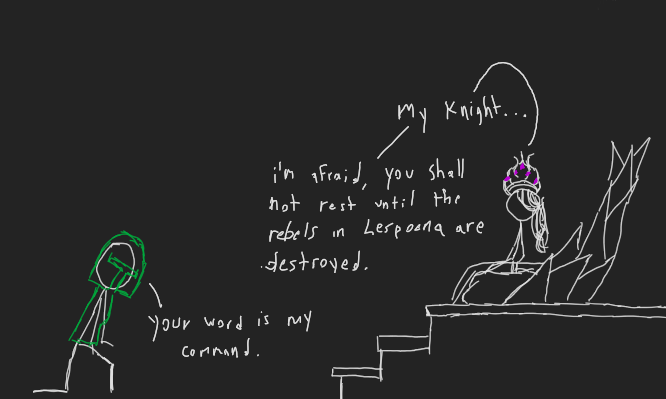 My Knight...
i'm afraid, you shall
not rest until the
rebels in Lespoena are
destroyed.
Your word is my
command.